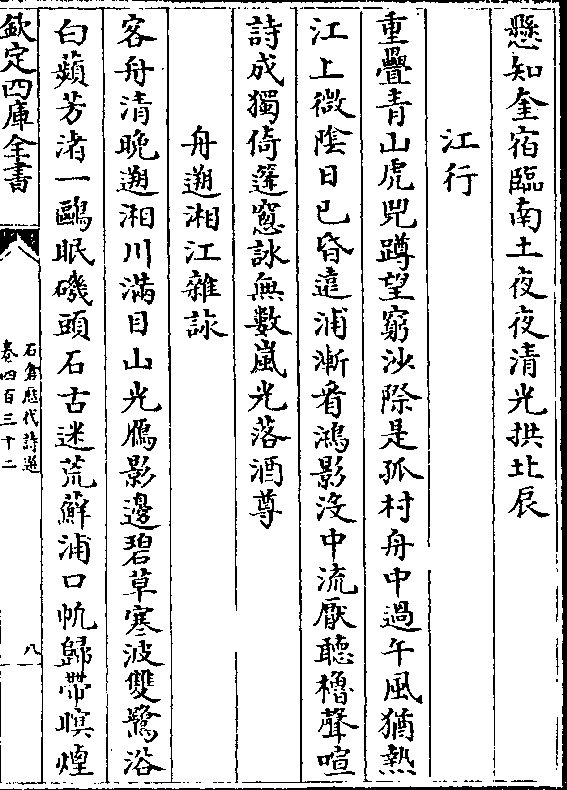 懸知奎宿臨南土夜夜清光拱北辰
江行
重疊青山虎兕蹲望窮沙際是孤村舟中過午風猶熱
江上微陰日已昏遠浦漸看鴻影没中流厭聽櫓聲喧
詩成獨倚篷窓詠無數嵐光落酒尊
舟遡湘江雜詠
客舟清晚遡湘川滿目山光鴈影邊碧草寒波雙鷺浴
白蘋芳渚一鷗眠磯頭石古迷荒蘚浦口帆歸帶暝煙
欽定四庫全書
石倉歴代詩選
卷四百三十二
八